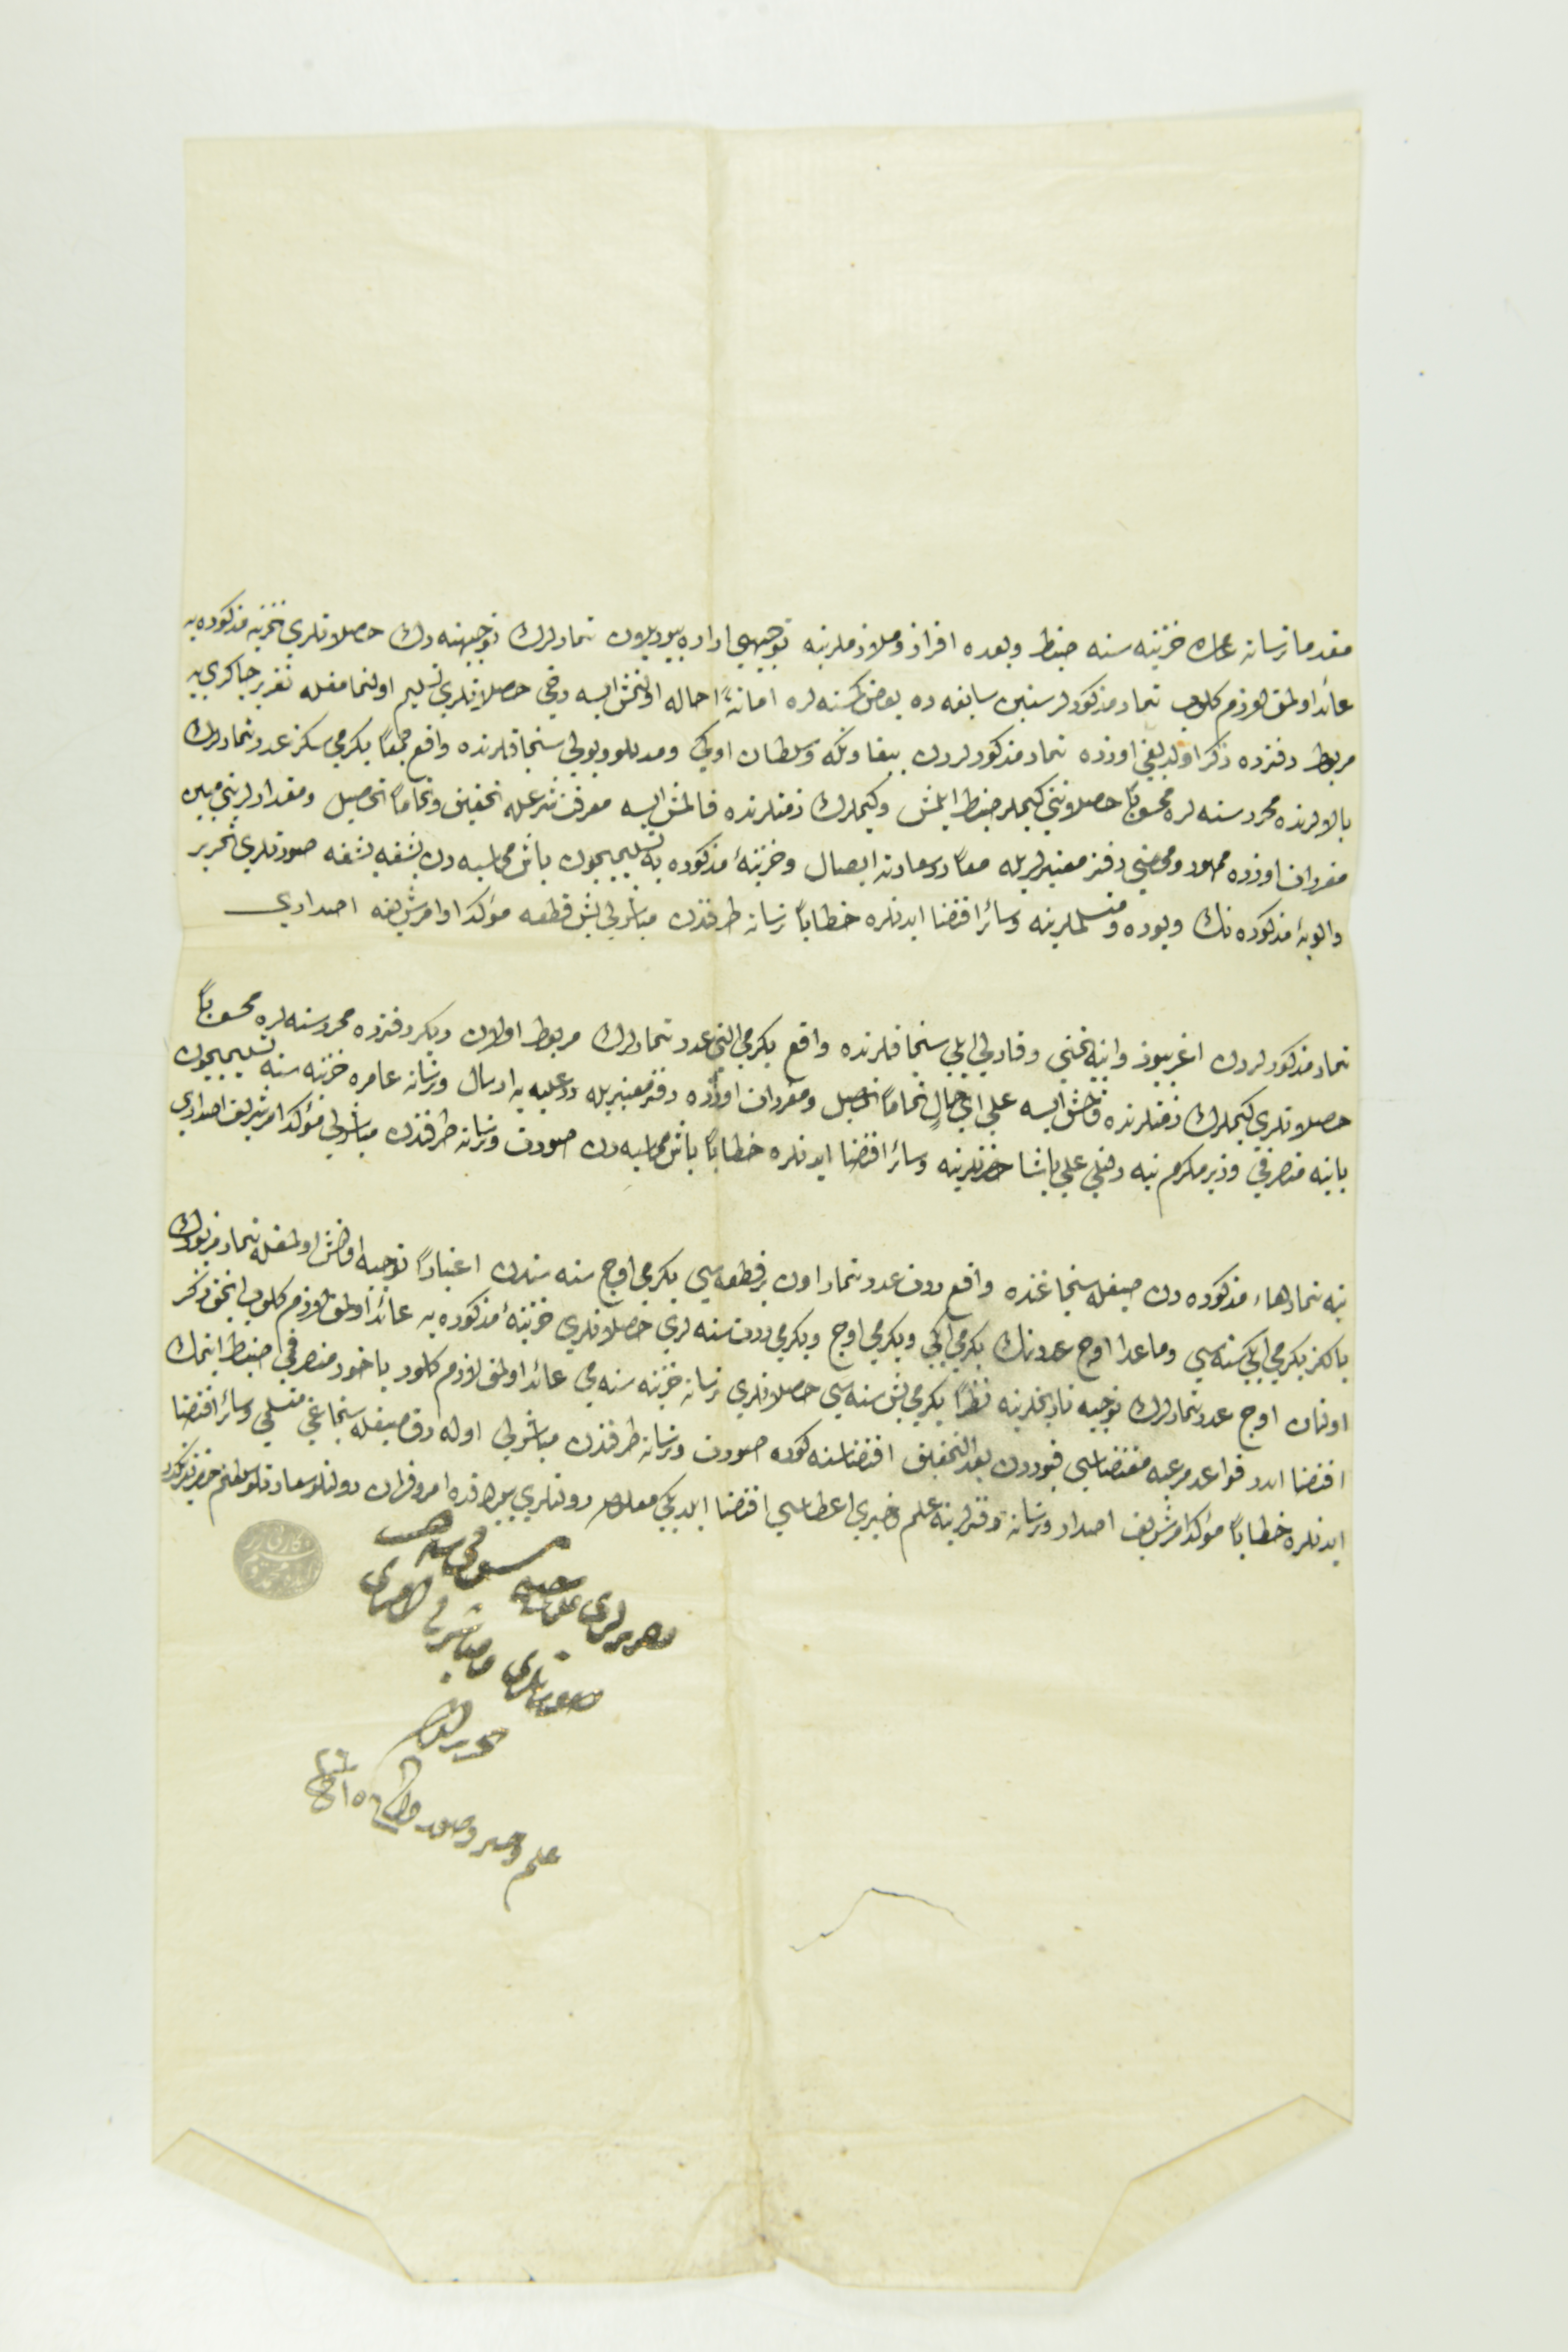 مقدما ترسانه عامره خزینه سنه ضبط و بعده افراز و ملازملرینه توجیهی اراده بیوریلان تیمارلرك توجیهنه دك حصلاتلری خزینه مذکوره یه
عائد اولمق لازم کلوب تیمار مذکورلر سنین سابقه ده بعض کسنه لره امانةً احاله اولنمش ایسه دخی حصلاتلری تسلیم اولنمامغله تقریر چاکری یه
مربوط دفترده ذکر اولندیغی اوزره تیمار مذکورلردن بیغا و بکه و سلطان اوکی و مدللو و بولی سنجاقلرنده واقع جمعاً یکرمی سکز عدد تیمارلرك
بالالرنده محرر سنه لره محسوباً حصلاتنی کیملر ضبط ایلمش و کیملرك ذمتلرنده قالمش ایسه معرفت شرعله تحقیق و تماماً تحصیل و مقدارلرینی مبین
مفردات اوزره ممهور و ممضی دفتر معتبرلریله معاً درسعادته ایصال و خزینهٔ مذکوره یه تسلیمیچون باش محاسبه دن بشقه بشقه صورتلری تحریر
و الویهٔ مذکوره نك ویوده و متسلملرینه و سائر اقتضا ایدنلره خطاباً ترسانه طرفندن مباشرلی بش قطعه مؤکد اوامر شریفه اصداری
تیمار مذکورلردن اغریبوز و اینه بختی و قارلی ایلی سنجاقلرنده واقع یکرمی التی عدد تیمارلرك مربوط اولان دیکر دفترده محرر سنه لره محسوباً
حصلاتلری کیملرك ذمتلرنده قالمش ایسه علی ای حالٍ تماماً تحصیل و مفردات اوزره دفتر معتبریله درعلیه یه ارسال و ترسانه عامره خزینه سنه تسلیمیچون
یانیه متصرفی وزیر مکرم تپه دلنلی علی پاشا حضرتلرینه و سائر اقتضا ایدنلره خطاباً باش محاسبه دن صورت و ترسانه طرفندن مباشرلی مؤکد امر شریف اصداری
ینه تیمارهاء مذکوره دن صیغله سنجاغنده واقع درت عدد تیماردن بر قطعه سی یکرمی اوچ سنه سندن اعتباراً توجیه اولنمش اولمغله تیمار مزبورك
یالکز یکرمی ایکی سنه سی و ماعدا اوچ عددینك یکرمی ایکی و یکرمی اوچ و یکرمی درت سنه لری حصلاتلری خزینهٔ مذکوره یه عائد اولمق لازم کلوب انجق ذکر
اولنان اوچ عدد تیمارلرك توجیه تاریخلرینه نظراً یکرمی بش سنه سی حصلاتلری ترسانه خزینه سنه می عائد اولمق لازم کلور یاخود متصرفی ضبط ایتمك
اقتضا ایدر قواعد مرعیه مقتضاسی قیوددن بعد التحقیق اقتضاسنه کوره صورت و ترسانه طرفندن مباشرلی اوله رق صیغله سنجاغی متسلمی و سائر اقتضا
ایدنلره خطاباً مؤکد امر شریف اصدار و ترسانه دفترلرینه علم و خبری اعطاسی اقتضا ایلدیکی معلوم دولتلری بیورلدقده امر و فرمان دولتلو سعادتلو سلطانم حضرتلرینکدر